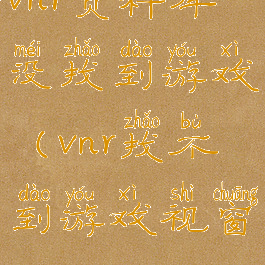 vnr资料库
méi zhǎo dào yóu xì
没找到游戏
zhǎo bú
(vnr找不
dào yóu xì shì chuāng
到游戏视窗